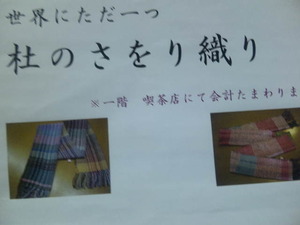 世界にただ一つ
杜のさをり織り
※一階 喫茶店にて会計たまわりま